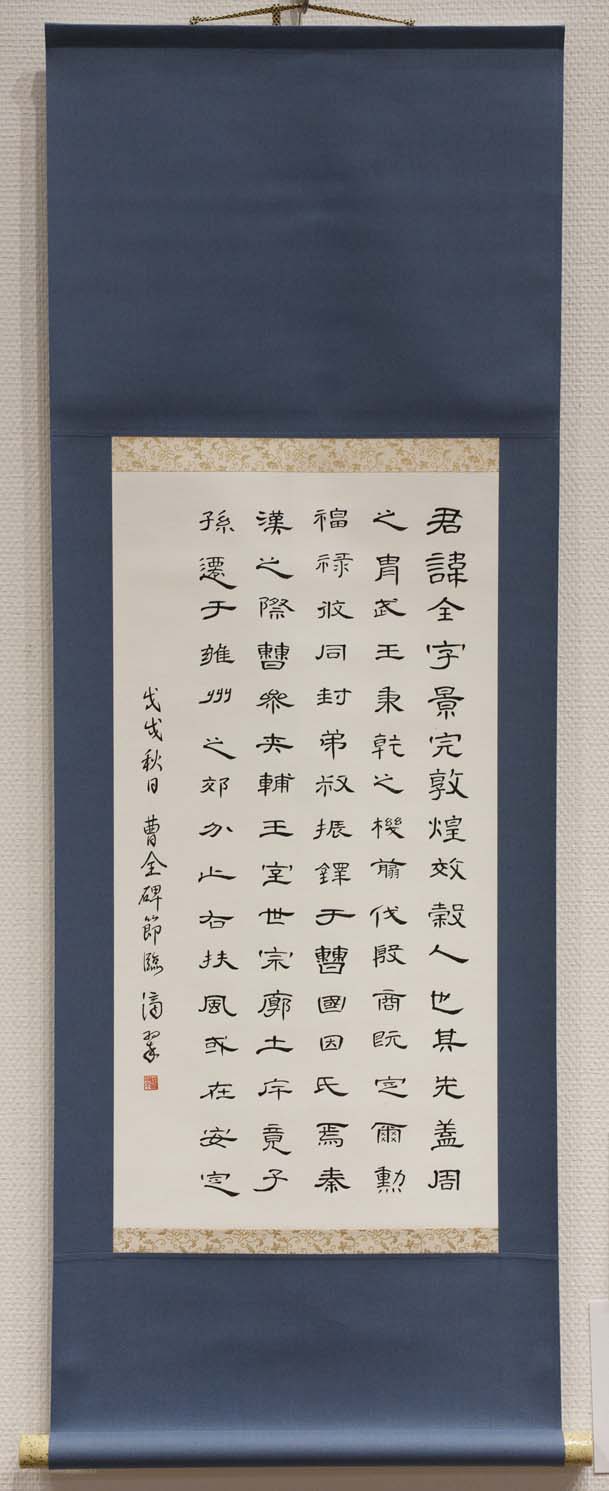 君諱全字景完敦煌效穀人也其先蓋周
之胄武王秉乾之機翦伐殷商旣定爾勳
福祿攸同封弟叔振鐸于曹國因氏焉秦
漢之際曹參夾輔王室世宗廓土斥竟子
孫遷于雍州之郊分止右扶風或在安定
戊戌秋日 曹全碑節臨 翠